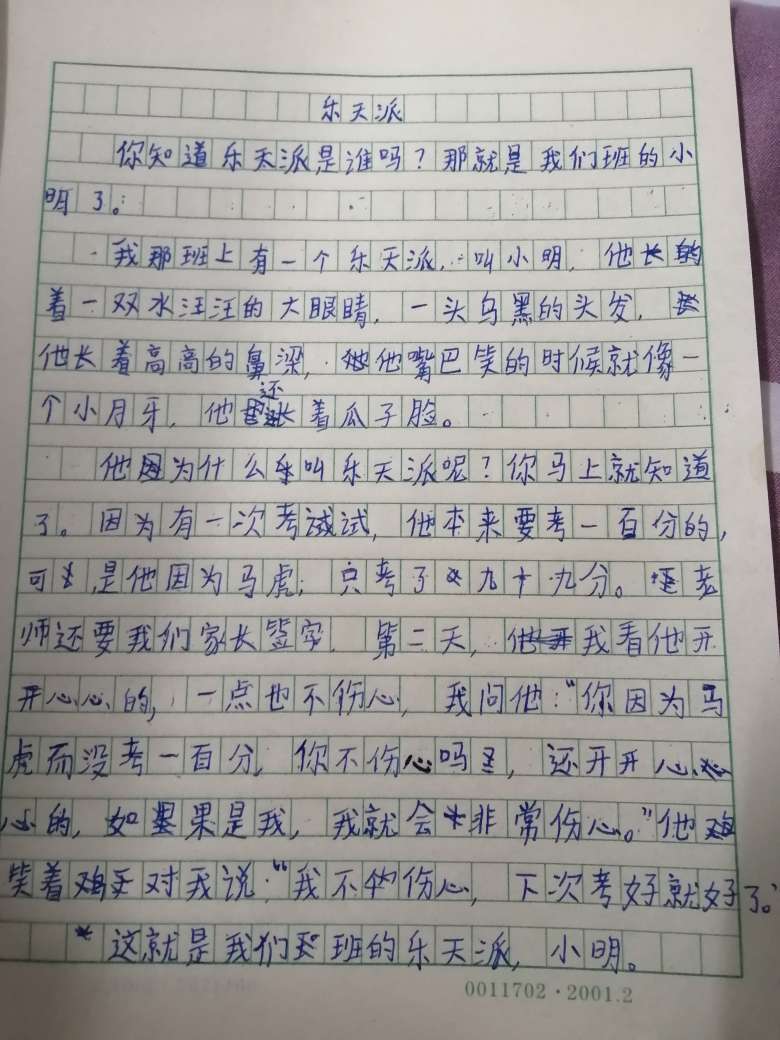 乐天派
你知道乐天派是谁吗？那就是我们班的小
明了。
我那班上有一个乐天派，叫小明，他长
着一双水汪汪的大眼睛，一头乌黑的头发，
他长着高高的鼻梁，他嘴巴笑的时候就像一
个小月牙，他还长着瓜子脸。
他为什么叫乐天派呢？你马上就知道
了。因为有一次考试，他本来要考一百分的，
可是他因为马虎，只考了九十九分。老
师还要我们家长签字，第二天，我看他开
开心心的，一点也不伤心，我问他：“你因为马
虎而没考一百分，你不伤心吗，还开开心
心的，如果是我，我就会非常伤心。”他
笑着对我说：“我不伤心，下次考好就好了。”
这就是我们班的乐天派，小明。
0011702·2001.2